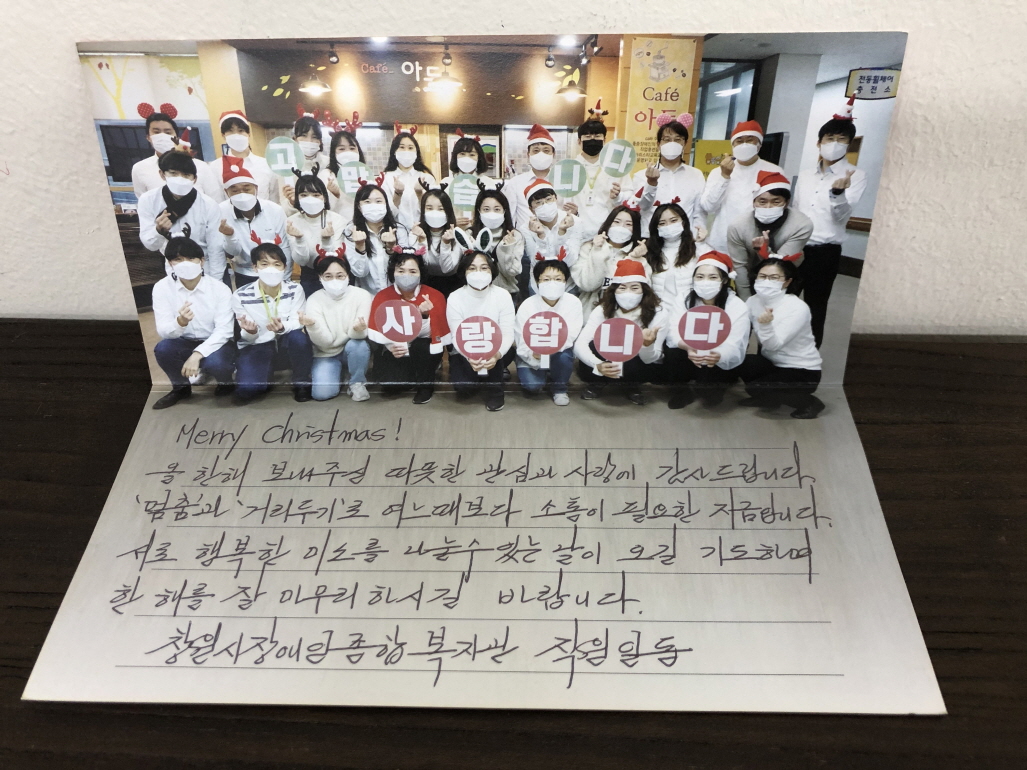 Café 아두
Café
아두
전동휠체어
충전소
고 맙 습 니 다
사 랑 합 니 다
Merry Christmas!
올 한해 보내주신 따뜻한 관심과 사랑에 감사드립니다.
'멈춤'과 '거리두기'로 여느때보다 소통이 필요한 지금입니다.
서로 행복한 미소를 나눌수 있는 날이 오길 기도하며
한 해를 잘 마무리 하시길 바랍니다.
창원시장애인종합복지관 직원일동